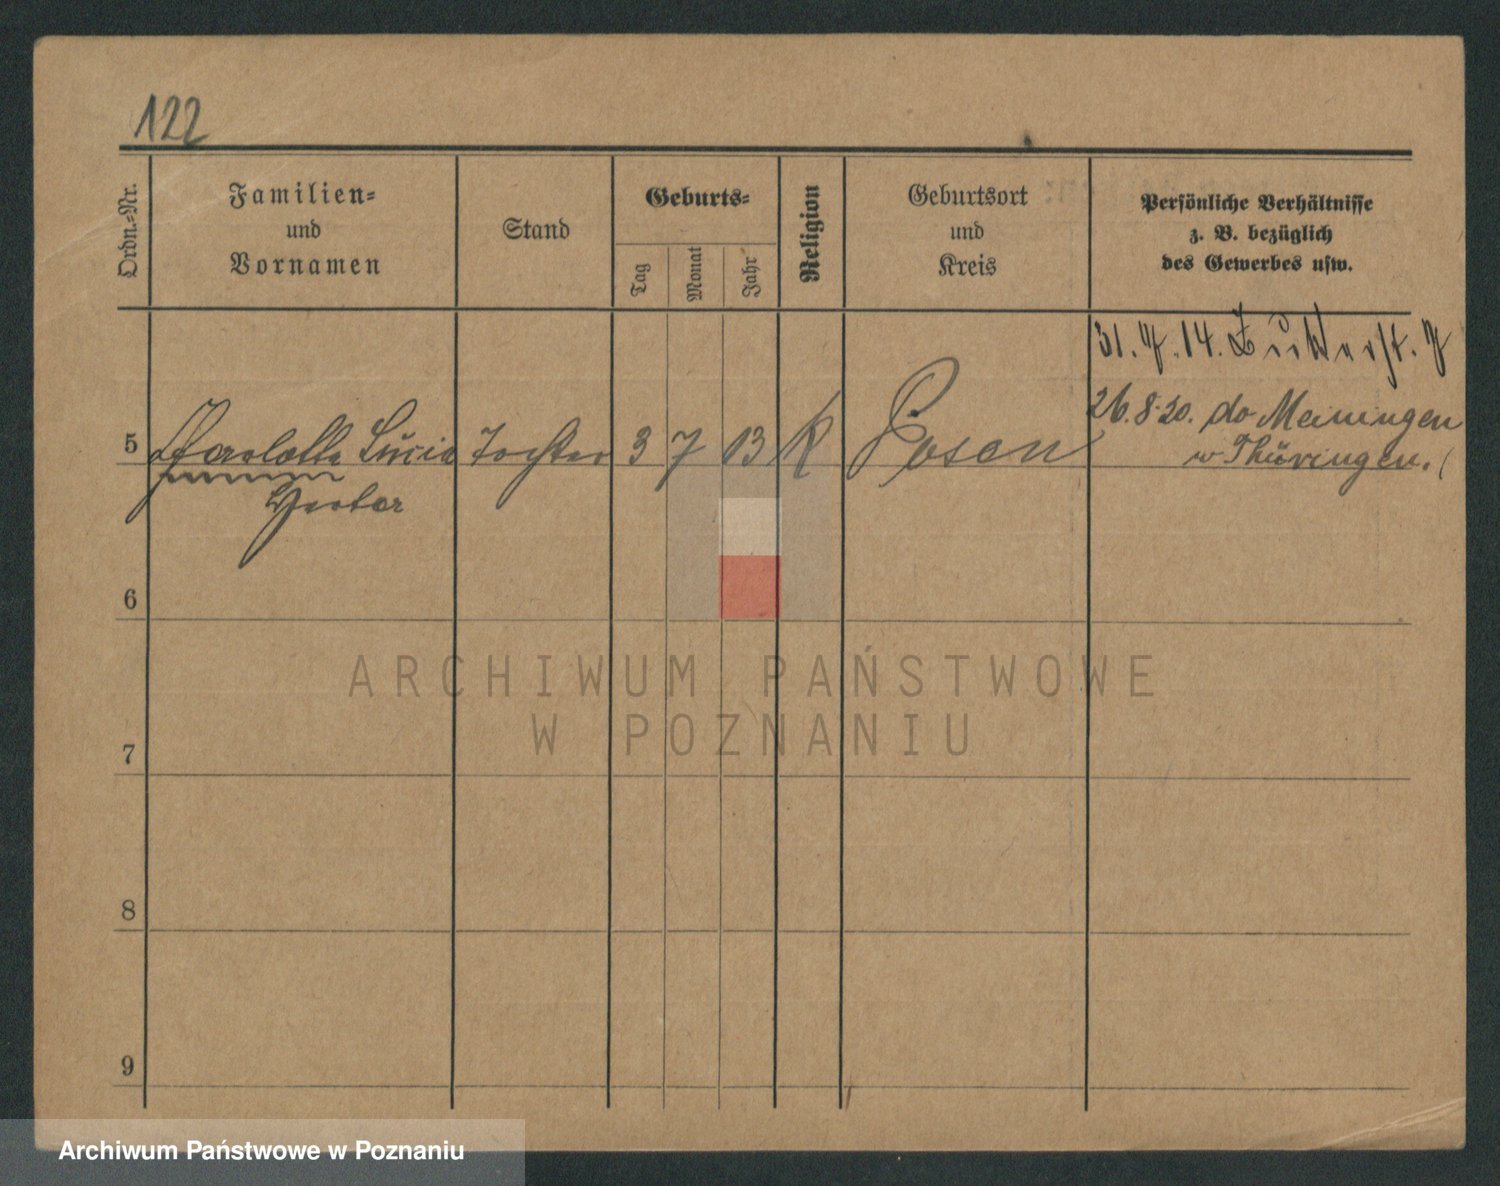 122
Ordn.=Nr.
Familien=
und
Vornamen
Stand
Geburts=
Tag
Monat
Jahr
Religion
Geburtsort
und
Kreis
Persönliche Verhältnisse
z. B. bezüglich
des Gewerbes usw.
31. 7. 14.
5 Charlotte Lucie Tochter 3 7 13 K Posen 26.8.20. do Meiningen
Thüringen.
6
7
8
9
ARCHIWUM PAŃSTWOWE
W POZNANIU
Archiwum Państwowe w Poznaniu